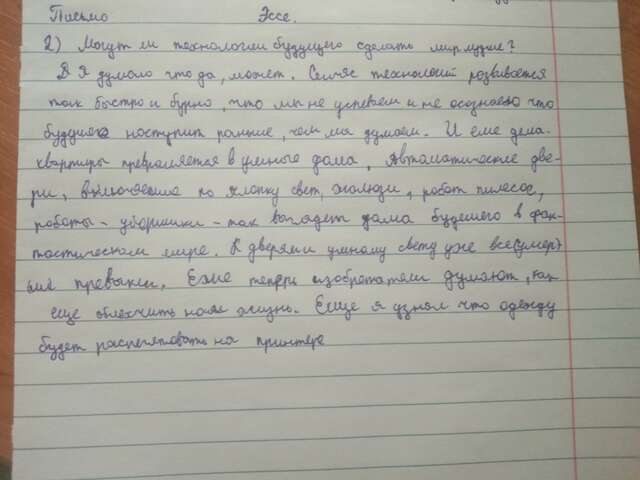 Письмо Эссе.
2) Могут ли технологии будущего сделать мир лучше?
Я думаю что да, может. Сейчас технологий розвивается
так быстро и бурно, что мы не успеваем и не осознаем что
будущее наступит раньше, чем мы думаем. И еме дома.
квартиры превроляется в умные дома, Автоматические две-
ри, включение по хлопку свет, жалюзи, робот пылесос,
роботы - уборшики - так выглядет дома будешего в фан-
тастическом мире. К дверями умному свету уже все
превыкли. Ежие теперь изобретатели думают, как
еще облехчить ноше жизнь. Еще я узнал что одежду
будет распечятовать на принтере